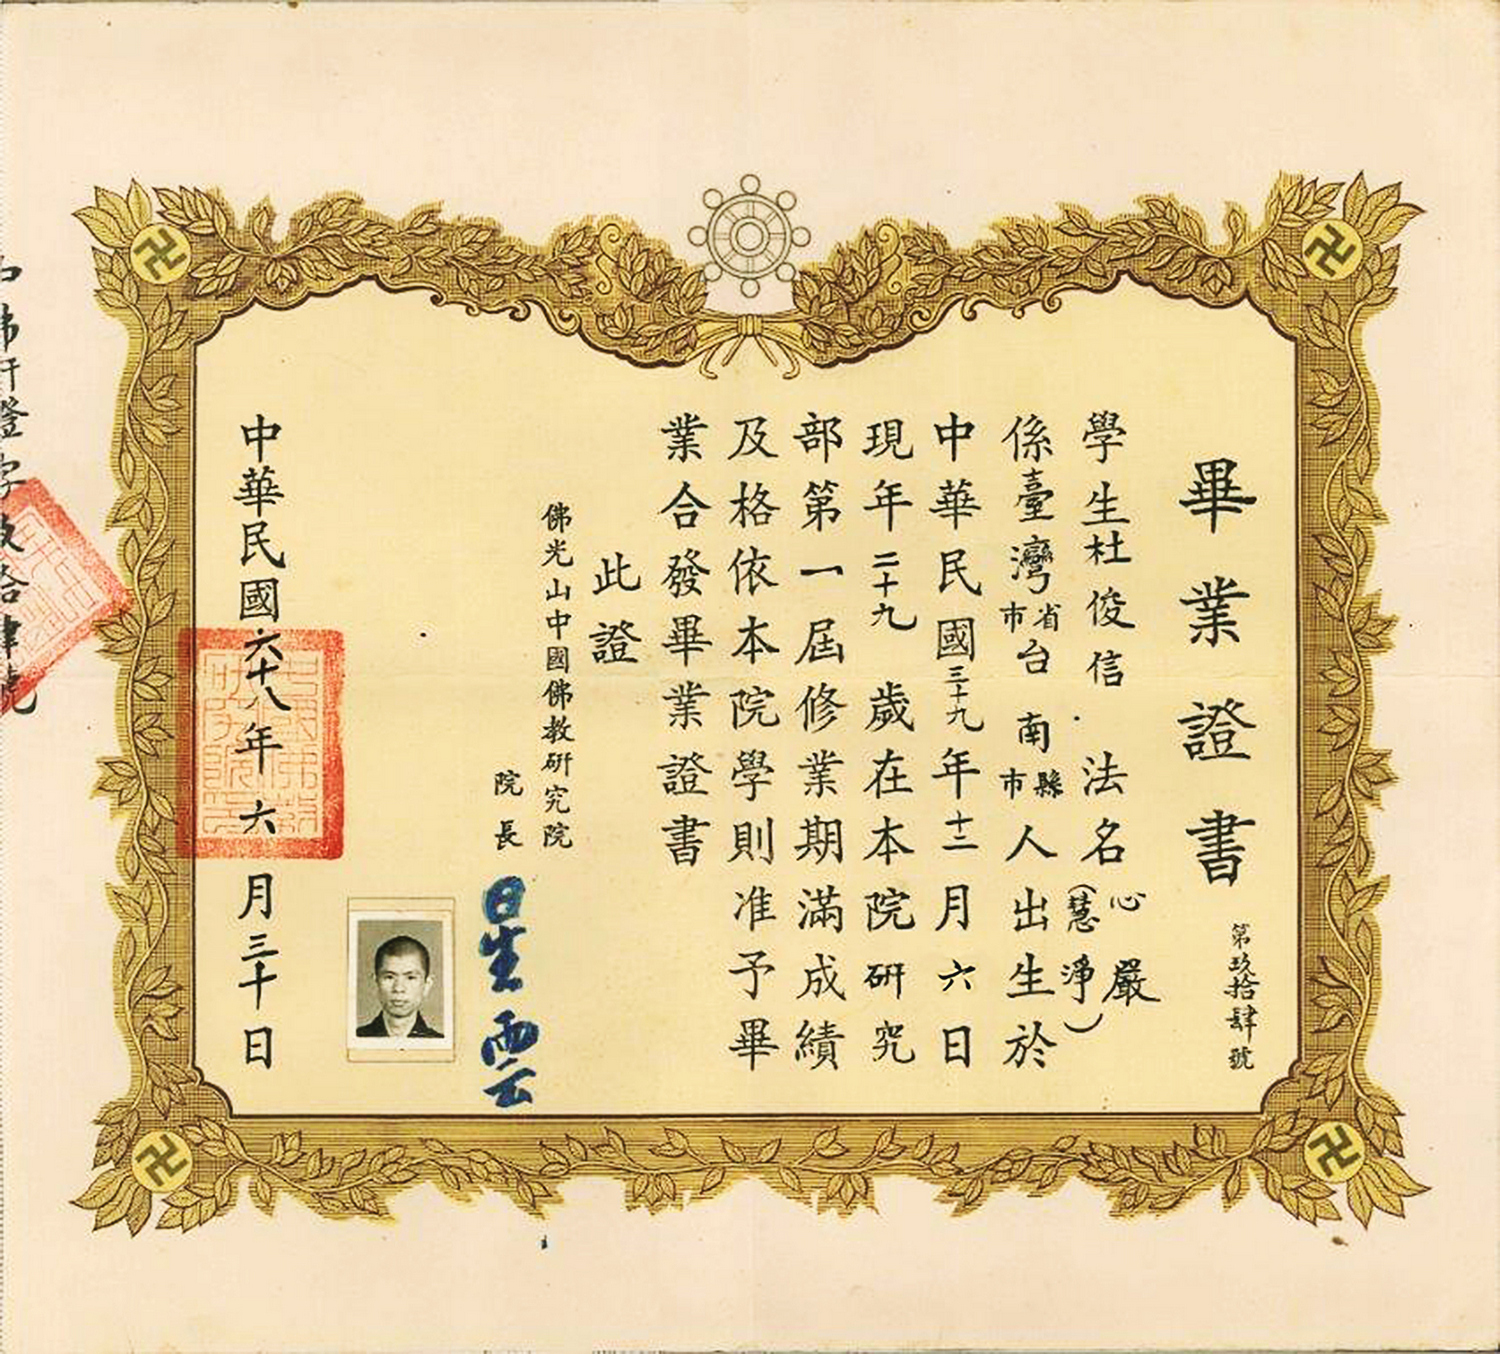 畢業證書
第玖拾肆號
學生杜俊信 法名心嚴
(慧淨)
係臺灣省市台南縣市人出生於
中華民國三十九年十二月六日
現年二十九歲在本院研究
部第一屆修業期滿成績
及格依本院學則准予畢
業合發畢業證書
此證
佛光山中國佛教研究院
院長
星雲
中華民國六十八年六月三十日